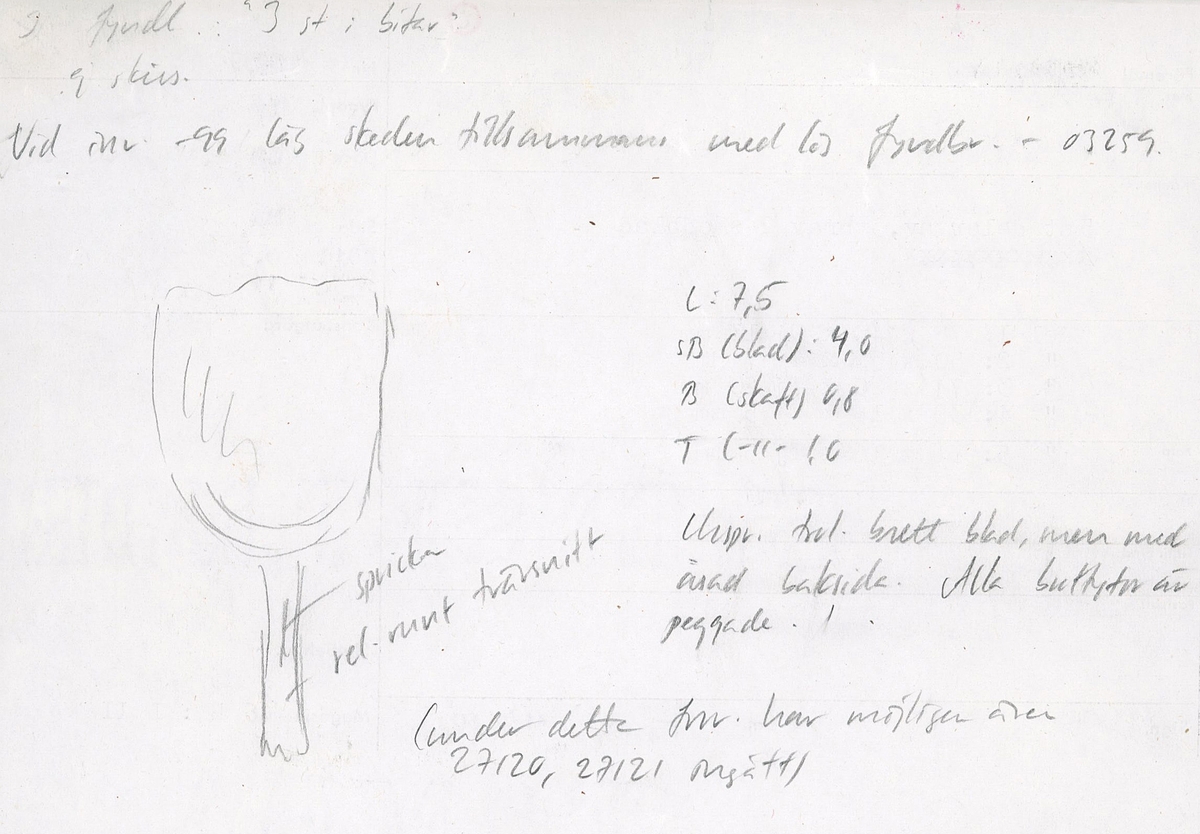 J fyndl. : "3 st i bitar"
ej skiss.
Vid inv. -99 låg skeden tillsammans med lös fyndbr. - 03259.
L: 7,5
sB (blad): 4,0
B (skaft) 0,8
T (-11- 1,0
Urspr. trol. brett blad, men med
åsad baksida. Alla buttytor är
peggade. !
spricka
rel. runt tvärsnitt
(under detta fnr. har möjligen även
27120, 27121 ingått)